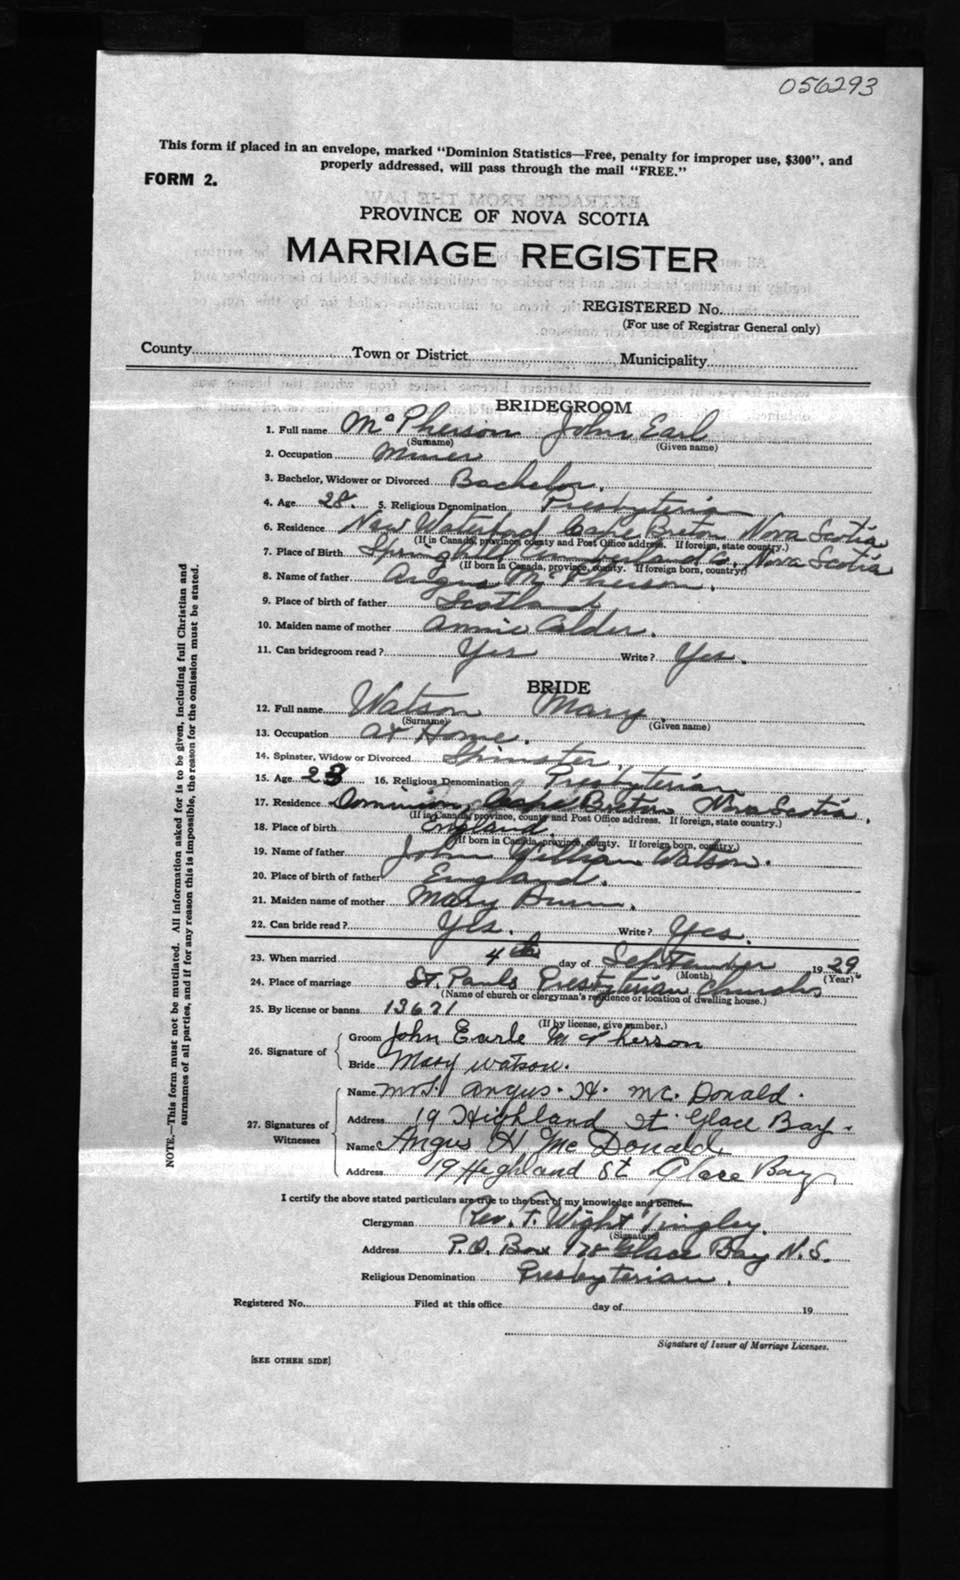 056293
This form if placed in an envelope, marked "Dominion Statistics—Free, penalty for improper use, $300", and
properly addressed, will pass through the mail "FREE."
FORM 2.
PROVINCE OF NOVA SCOTIA
MARRIAGE REGISTER
REGISTERED No.
(For use of Registrar General only)
County Town or District Municipality
BRIDEGROOM
1. Full name McPherson John Earl
(Surname) (Given name)
2. Occupation Miner
3. Bachelor, Widower or Divorced Bachelor.
4. Age 28. 5. Religious Denomination Presbyterian
6. Residence New Waterford Cape Breton Nova Scotia
(If in Canada, province, county and Post Office address. If foreign, state country.)
7. Place of Birth Springhill Cumberland Co. Nova Scotia
(If born in Canada, province, county. If foreign born, country.)
8. Name of father Angus McPherson.
9. Place of birth of father Scotland
10. Maiden name of mother Annie Calder.
11. Can bridegroom read? Yes Write? Yes.
BRIDE
12. Full name Watson Mary
(Surname) (Given name)
13. Occupation At Home.
14. Spinster, Widow or Divorced Spinster.
15. Age 23 16. Religious Denomination Presbyterian
17. Residence Dominion, Cape Breton Nova Scotia.
(If in Canada, province, county and Post Office address. If foreign, state country.)
18. Place of birth England.
(If born in Canada, province, county. If foreign born, country.)
19. Name of father John William Watson.
20. Place of birth of father England.
21. Maiden name of mother Mary
22. Can bride read? Yes. Write? Yes.
23. When married 4th day of September 1929
(Month) (Year)
24. Place of marriage St. Pauls Presbyterian Church
(Name of church or clergyman's residence or location of dwelling house.)
25. By license or banns 13671
(If by license, give number.)
26. Signature of Groom John Earle McPherson
Bride Mary Watson.
27. Signatures of Witnesses Name Mrs. Angus. H. McDonald.
Address 19 Highland St Glace Bay.
Name Angus H McDonald
Address 19 Highland St Glace Bay
I certify the above stated particulars are true to the best of my knowledge and belief.
Clergyman Rev. F. Wight Tingley.
(Signature)
Address P.O. Box Glace Bay N.S.
Religious Denomination Presbyterian.
Registered No. Filed at this office day of 19
Signature of Issuer of Marriage Licenses.
[SEE OTHER SIDE]
NOTE.—This form must not be mutilated. All information asked for is to be given, including full Christian and
surnames of all parties, and if for any reason this is impossible, the reason for the omission must be stated.